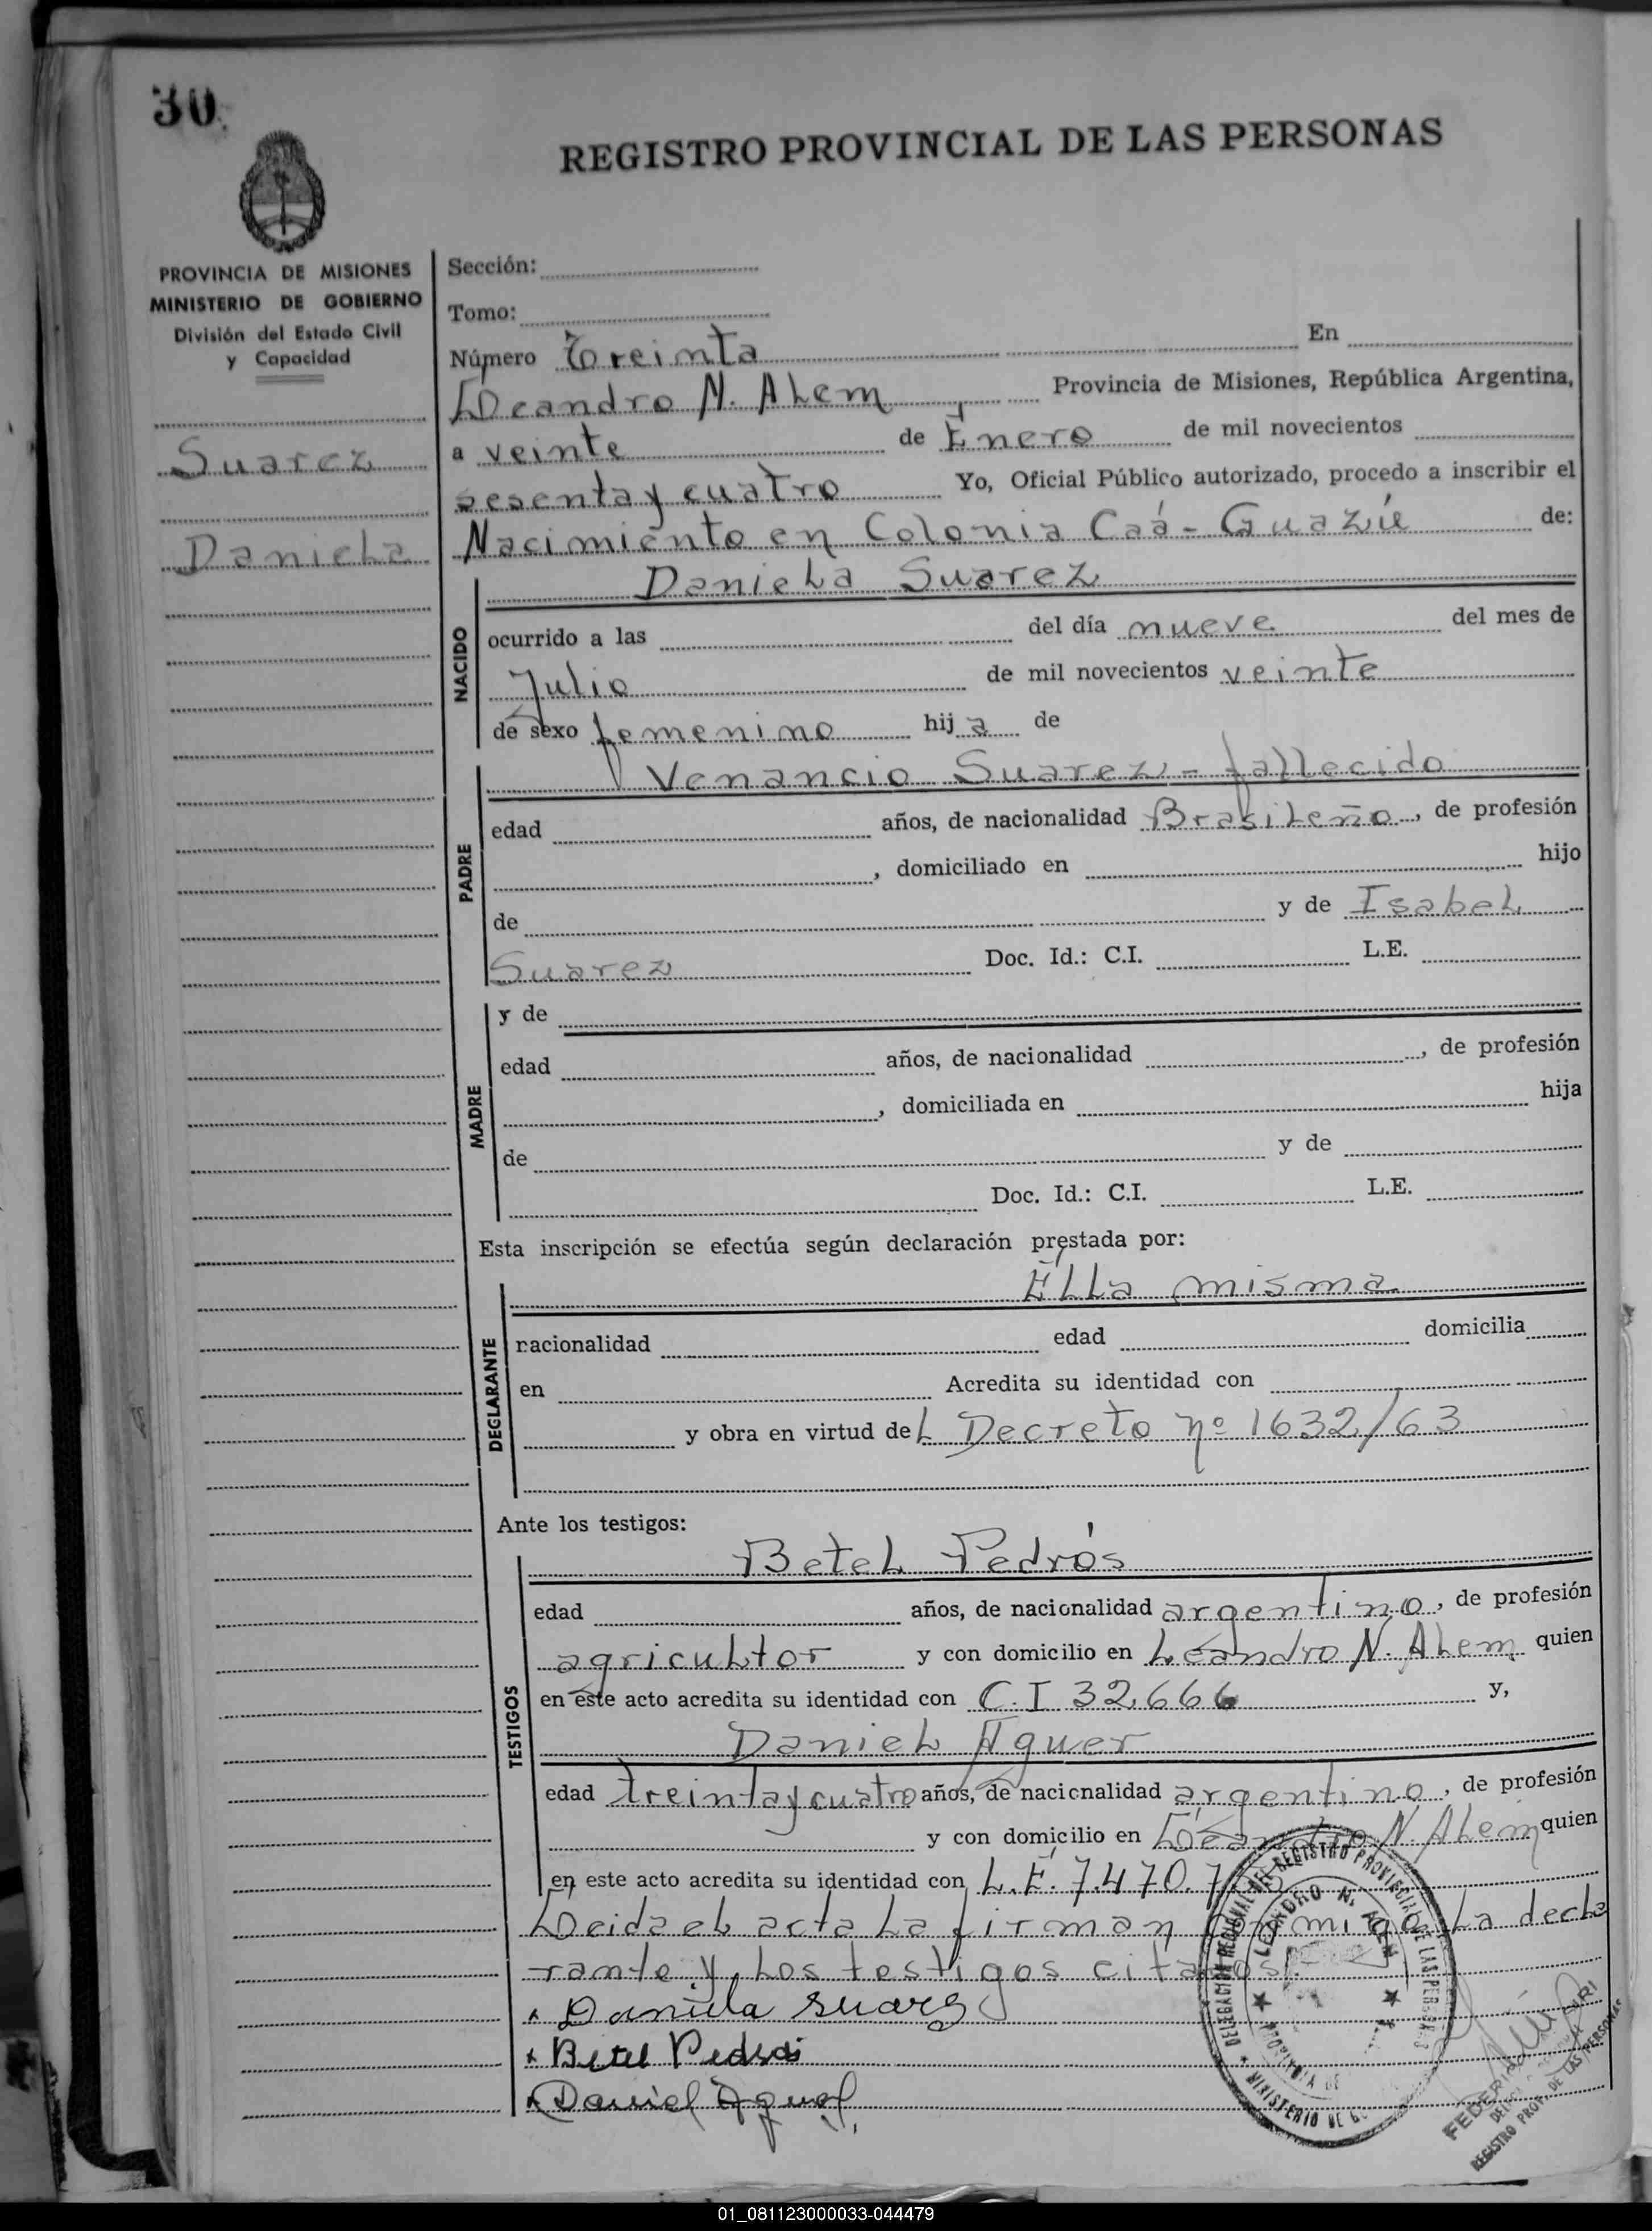 30
REGISTRO PROVINCIAL DE LAS PERSONAS
PROVINCIA DE MISIONES
MINISTERIO DE GOBIERNO
División del Estado Civil
y Capacidad
Suarez
Daniela
Sección:
Tomo:
Número Treinta En
Leandro N. Alem Provincia de Misiones, República Argentina,
a veinte de Enero de mil novecientos
sesenta y cuatro Yo, Oficial Público autorizado, procedo a inscribir el
Nacimiento en Colonia Caá-Guazú de:
NACIDO
Daniela Suarez
ocurrido a las del día nueve del mes de
Julio de mil novecientos veinte
de sexo femenino hija de
PADRE
Venancio Suarez - fallecido
edad años, de nacionalidad Brasileño, de profesión
, domiciliado en hijo
de y de Isabel
Suarez Doc. Id.: C.I. L.E.
MADRE
y de
edad años, de nacionalidad , de profesión
, domiciliada en hija
de y de
Doc. Id.: C.I. L.E.
Esta inscripción se efectúa según declaración prestada por:
DECLARANTE
Ella misma
nacionalidad edad domicilia
en Acredita su identidad con
y obra en virtud del Decreto nº 1632/63
Ante los testigos:
TESTIGOS
Betel Pedrós
edad años, de nacionalidad argentino, de profesión
agricultor y con domicilio en Leandro N. Alem quien
en este acto acredita su identidad con C.I 32.666 y,
Daniel Aguer
edad treinta y cuatro años, de nacionalidad argentino, de profesión
y con domicilio en Leandro N. Alem quien
en este acto acredita su identidad con L.E. 7.470.7
Leida el acta la firman conmigo la decla
rante y los testigos citados
Daniela Suarez
Betel Pedrós
Daniel Aguer
DELEGACION REGIONAL DEL REGISTRO PROVINCIAL DE LAS PERSONAS
LEANDRO N. ALEM
PROVINCIA DE
MINISTERIO DE
REGISTRO PROV. DE LAS PERSONAS
01_081123000033-044479